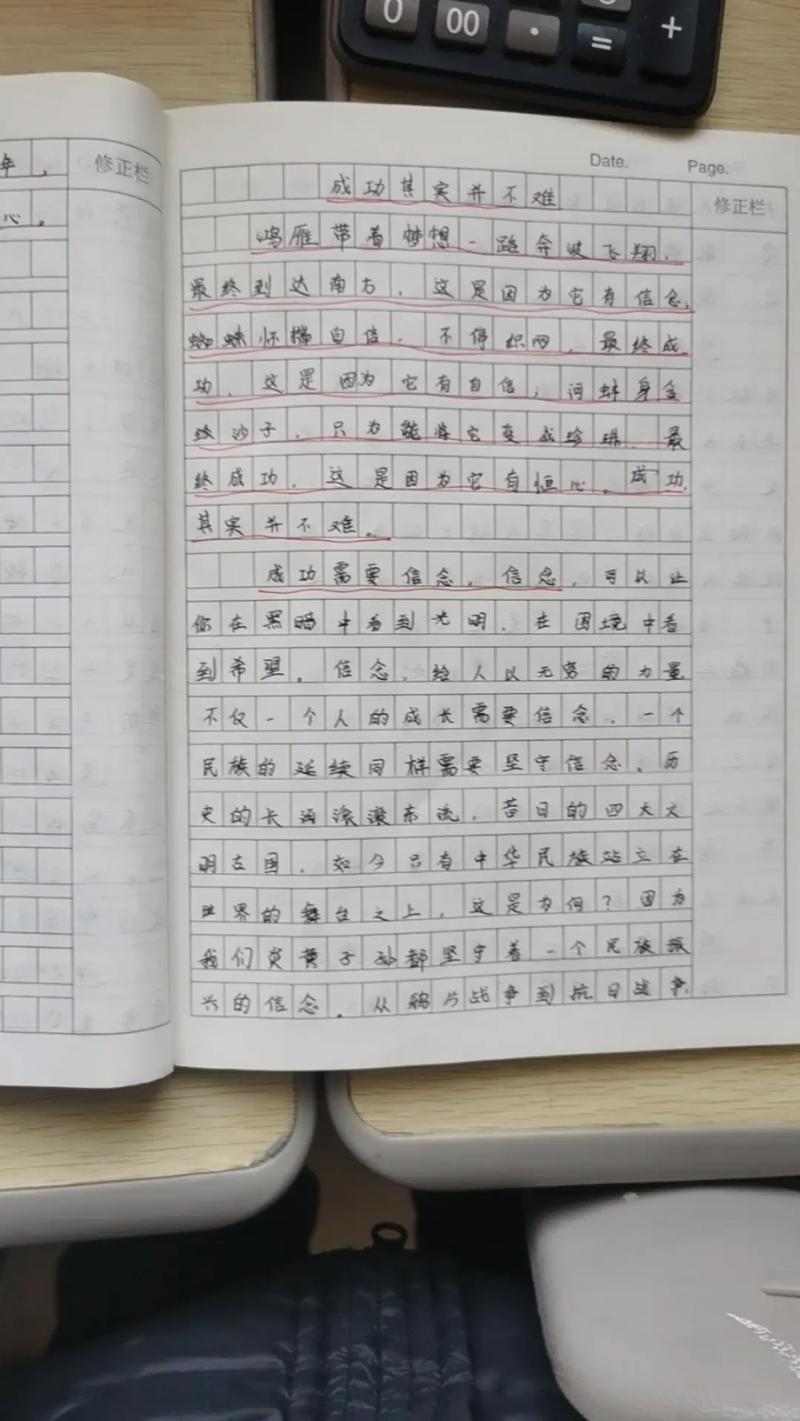 0
00
·
=
+
Date.
Page.
年，
心。
修正栏
修正栏
成功其实并不难
鸿雁带着梦想一路奔波飞翔，
最终到达南方，这是因为它有信念，
蜘蛛怀揣自信，不停织网，最终成
功，这是因为它有自信；河蚌身含
沙子，只为能将它变成珍珠，最
终成功，这是因为它有恒心。成功
其实并不难。
成功需要信念，信念，可以让
你在黑暗中看到光明，在困境中看
到希望。信念，给人以无穷的力量
不仅一个人的成长需要信念，一个
民族的延续同样需要坚守信念、历
史的长河滚滚东流，昔日的四大文
明古国，如今只有中华民族站立在
世界的舞台之上，这是为何？因为
我们炎黄子孙都坚守着一个民族振
兴的信念。从鸦片战争到抗日战争